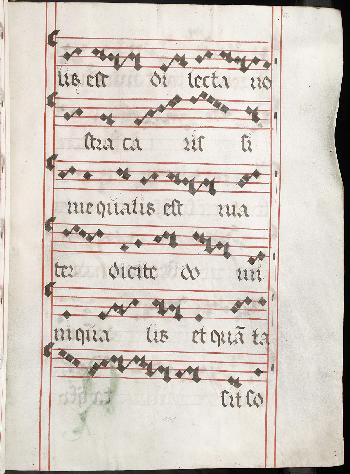 lis est di lecta no
stra ca ris si
me qualis est ma
ter dicite do mi
ni qua lis et quā ta
sit so